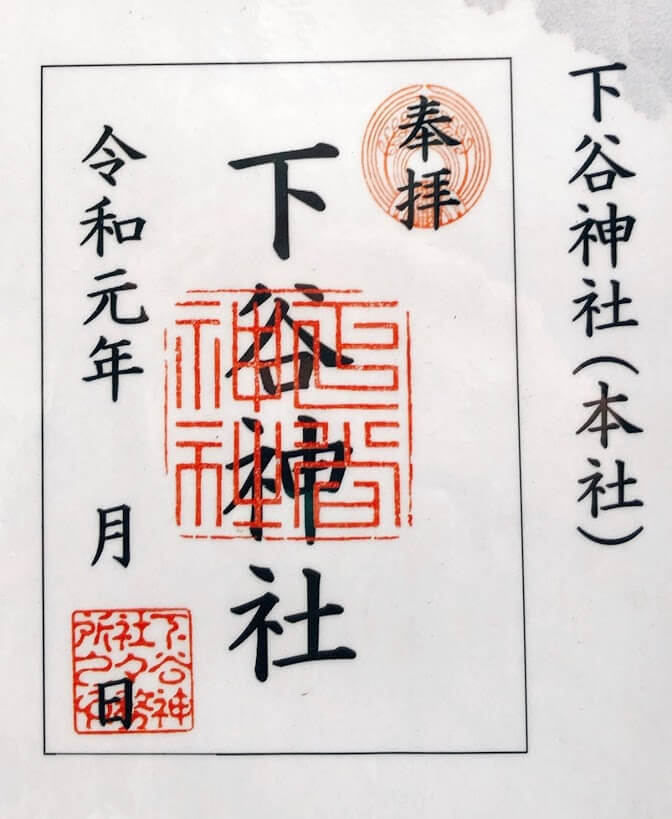 下谷神社（本社）
奉拝
下谷神社
令和元年　月　日
下谷神社
下谷神
社々務
所之印